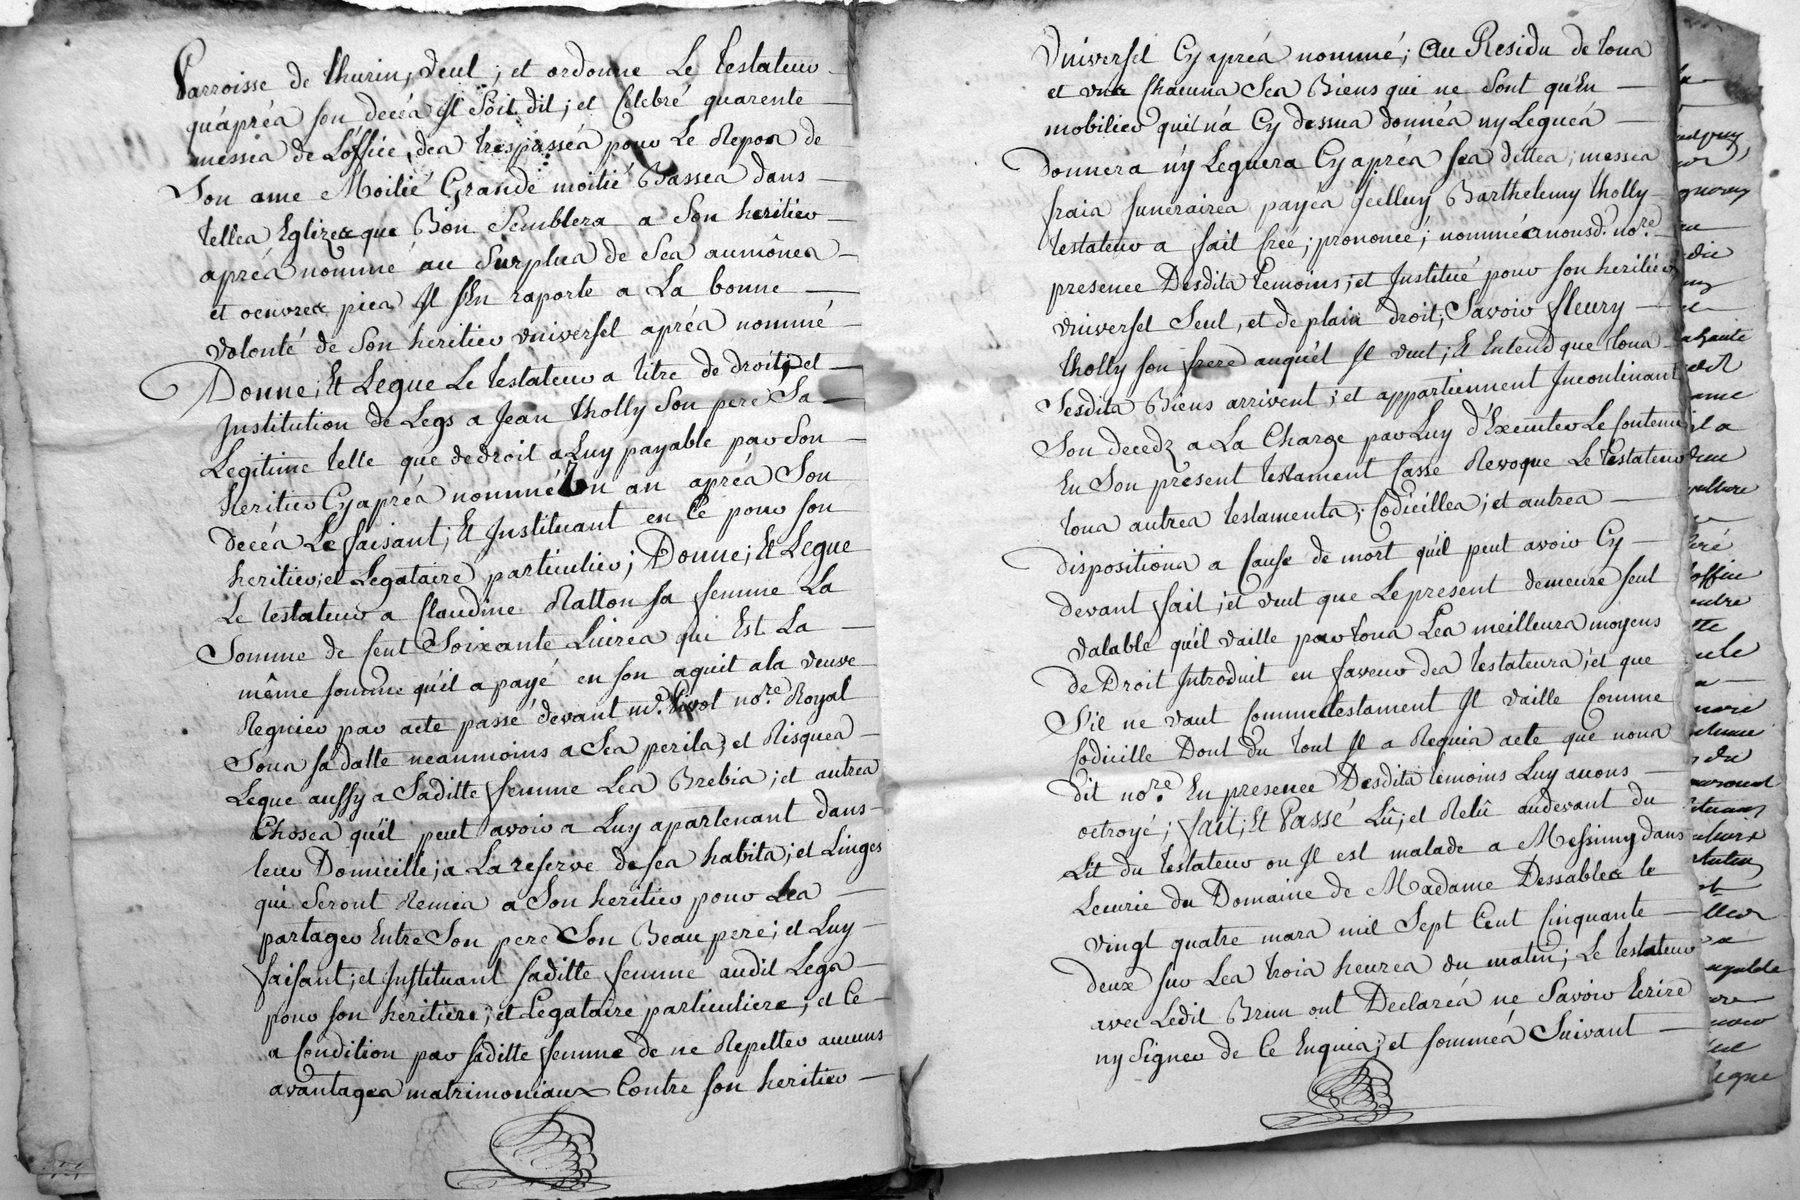 Parroisse de thurin, veut ; et ordonne Le testateur
qu'aprés son decés Il Soit dit ; et Celebré quarente
messes de L'office des trespassés pour Le Repos de
Son ame Moitié Grande moitié Basses dans
telles Eglizes que Bon Semblera a Son heritier
aprés nommé au Surplus de Ses aumônes
et oeuvres pies Il s'En raporte a La bonne
volonté de Son heritier vniversel aprés nommé
Donne ; Et Legue Le testateur a titre de droit ; et
Institution de Legs a Jean tholly Son pere Sa
Legitime telle que de droit a Luy payable par Son
heritier Cyaprés nommé Un an aprés Son
decés Le faisant ; Et Instituant en Ce pour son
heritier ; et Legataire particulier ; Donne ; Et Legue
Le testateur a Claudine Ratton sa femme La
Somme de Cent Soixante Livres qui Est La
même somme qu'il a payé en son aquit a la veuve
Regnier par acte passé devant me. no.re Royal
Sous sa datte neanmoins a Ses perils ; et Risques
Legue aussy a Saditte femme Les Brebis ; et autres
Choses qu'il peut avoir a Luy apartenant dans
leur Domicille ; a La reserve de ses habits ; et Linges
qui Seront Remis a Son heritier pour Les
partager Entre Son pere Son Beau pere ; et Luy
faisant ; et Instituant saditte femme audit Legs
pour son heritiere ; et Legataire particuliere ; et Ce
a Condition par saditte femme de ne Repetter aucuns
avantages matrimoniaux Contre son heritier
vniversel Cy aprés nommé ; Au Residu de tous
et vns Chacuns Ses Biens qui ne Sont qu'En
mobilier qu'il n'a Cy dessus donnés ny Legués
Donnera n'y Leguera Cy aprés ses dettes ; messes
frais funeraires payés Icelluy Barthelemy tholly
testateur a fait créé ; prononcé ; nommé a nousd. no.re
presence Desdits temoins ; et Institué pour son heritier
vniversel Seul, et de plain droit, Savoir fleury
tholly son frere auquél Il veut ; Et Entend que tous
Sesdits Biens arrivent ; et appartiennent Incontinant
Son decedz a La Charge par Luy d'Executer Le Contenu
En Son present testament Casse Revoque Le testateur
tous autres testaments ; Codicilles ; et autres
Dispositions a Cause de mort qu'il peut avoir Cy
devant fait ; et veut que Le present demeure seul
valable qu'il vaille par tous Les meilleurs moyens
de Droit Introduit en faveur des testateurs ; et que
S'il ne vaut Comme testament Il vaille Comme
Codicille Dont du tout Il a Requis acte que nous
dit no.re En presence Desdits temoins Luy avons
octroyé ; fait ; Et Passé Lû ; et Relû audevant du
Lit du testateur ou Il est malade a Messimy dans
Lecurie du Domaine de Madame Dessables le
vingt quatre mars mil Sept Cent Cinquante
deux sur Les trois heures du matin ; Le testateur
avec Ledit Brun ont Declarés ne Savoir Ecrire
ny Signer de Ce Enquis ; et sommés Suivant